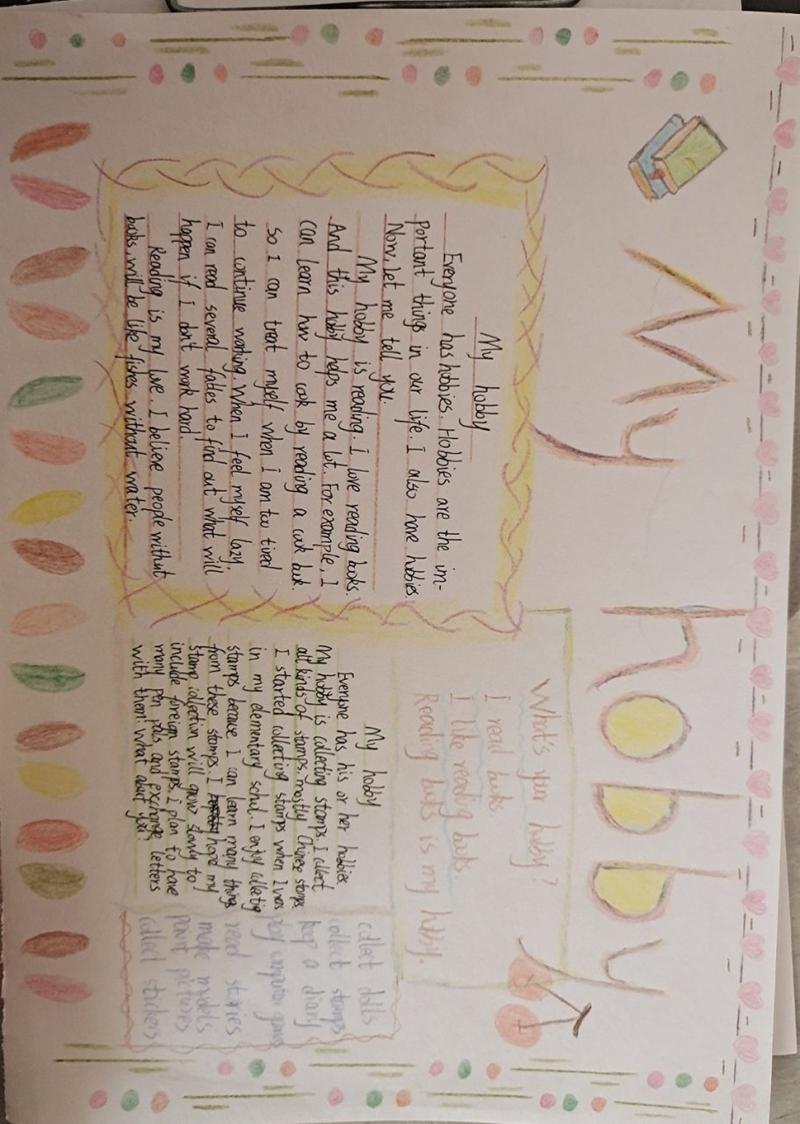 My hobby
My hobby
Everyone has hobbies. Hobbies are the im-
portant things in our life. I also have hobbies.
Now, let me tell you.
My hobby is reading. I love reading books.
And this hobby helps me a lot. For example, I
can learn how to cook by reading a cook book.
So I can treat myself when I am too tired
to continue working. When I feel myself lazy,
I can read several fables to find out what will
happen if I don't work hard.
Reading is my love. I believe people without
books will be like fishes without water.
What's your hobby?
I read books.
I like reading books.
Reading books is my hobby.
My hobby
Everyone has his or her hobbies.
My hobby is collecting stamps. I collect
all kinds of stamps, mostly Chinese stamps
I started collecting stamps when I was
in my elementary school. I enjoy collecting
stamps because I can learn many things
from these stamps. I hope my
stamp collection will grow slowly to
include foreign stamps. I plan to have
many pen pals and exchange letters
with them! What about you?
collect dolls
collect stamps
keep a diary
play computer games
read stories
make models
paint pictures
collect stickers